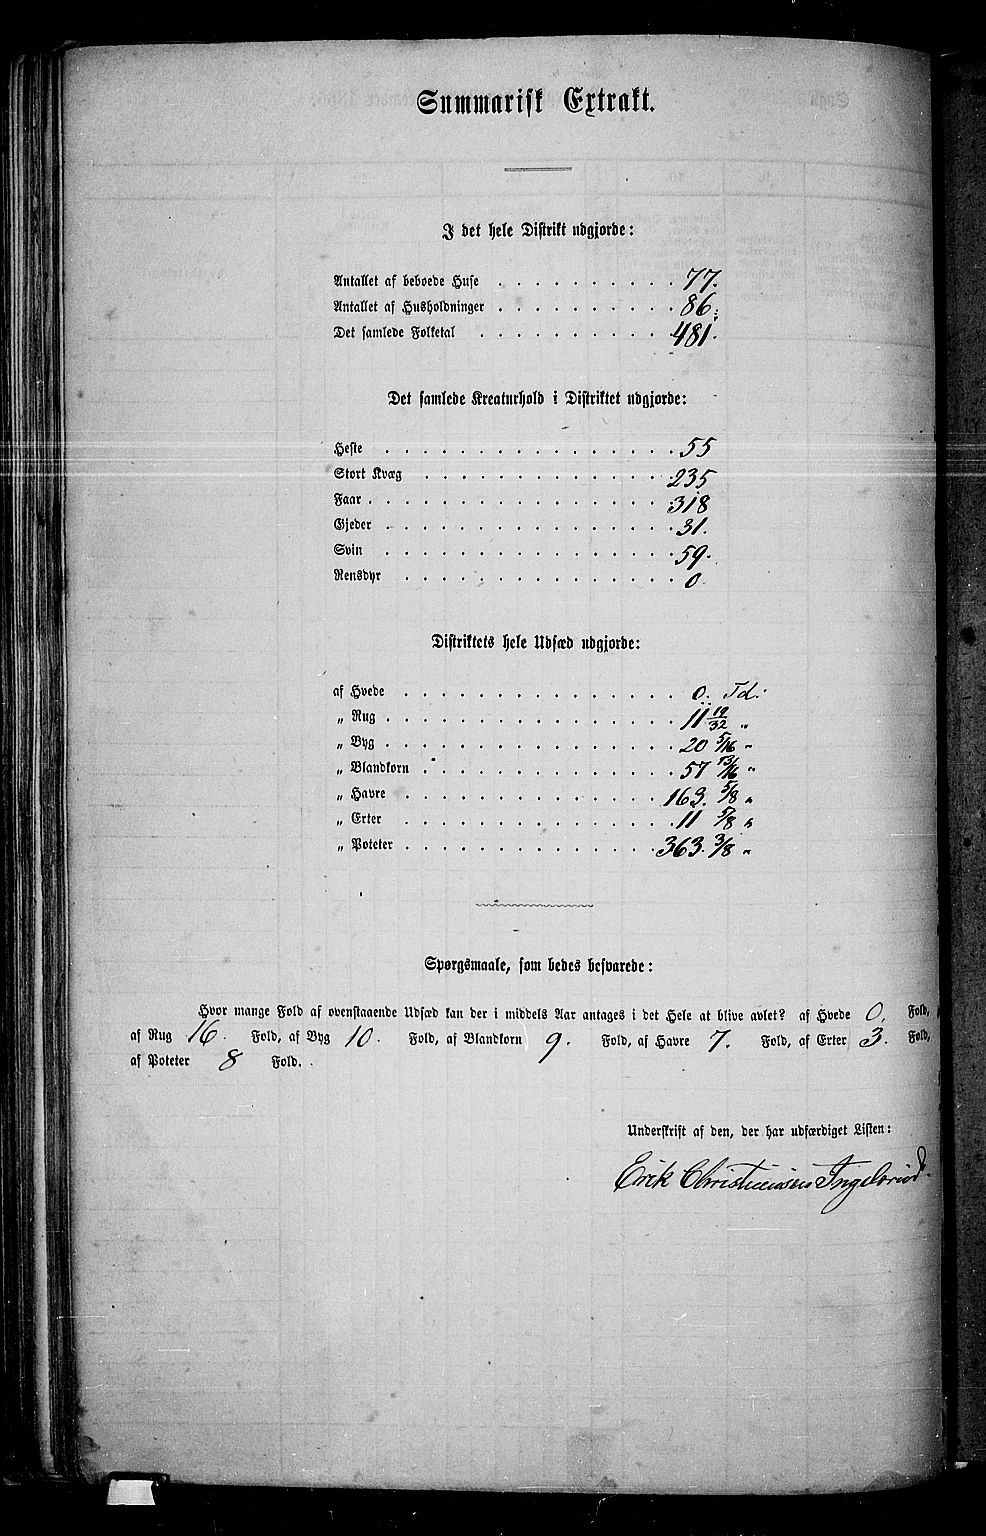 Summarisk Extrakt.
I det hele Distrikt udgjorde:
Antallet af beboede Huse . . . . . . . . . . 77.
Antallet af Husholdninger . . . . . . . . . . 86.
Det samlede Folketal . . . . . . . . . . . 481.
Det samlede Kreaturhold i Distriktet udgjorde:
Heste . . . . . . . . . . . . . . . . 55
Stort Kvæg . . . . . . . . . . . . . . 235
Faar . . . . . . . . . . . . . . . . . 318
Gjeder . . . . . . . . . . . . . . . . 31.
Svin . . . . . . . . . . . . . . . . 59.
Rensdyr . . . . . . . . . . . . . . . 0.
Distriktets hele Udsæd udgjorde:
af Hvede . . . . . . . . . . . . . . . 0. Td.
„ Rug . . . . . . . . . . . . . . . . 11 19/32 „
„ Byg . . . . . . . . . . . . . . . . 20 5/16 „
„ Blandkorn . . . . . . . . . . . . . . 57 13/16 „
„ Havre . . . . . . . . . . . . . . 163. 5/8 „
„ Erter . . . . . . . . . . . . . . . 11 5/8 „
„ Poteter . . . . . . . . . . . . . . 363. 3/8 „
Spørgsmaale, som bedes besvarede:
Hvor mange Fold af ovenstaaende Udsæd kan der i middels Aar antages i det Hele at blive avlet? af Hvede 0. Fold,
af Rug 16. Fold, af Byg 10. Fold, af Blandkorn 9. Fold, af Havre 7. Fold, af Erter 3. Fold,
af Poteter 8 Fold.
Underskrift af den, der har udfærdiget Listen:
Erik Christiansen Ingelsrud.